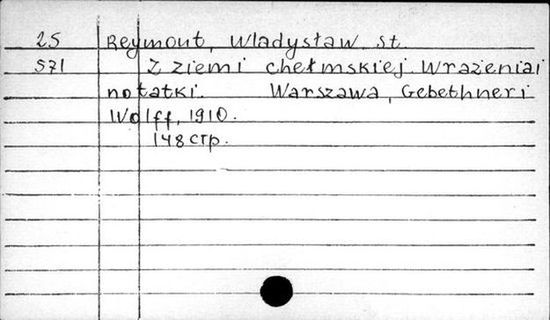 25 Reymont, Wladysław St.
571 Z ziemi chełmskiej. Wrażenia i
notatki. Warszawa, Gebethner i
Wolff, 1910.
148 стр.